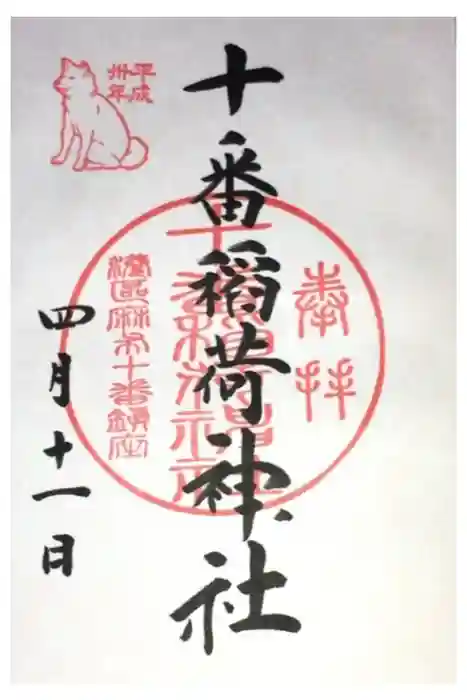 奉拝
十番稲荷神社
港区麻布十番鎮座
平成
卅年
四月十一日